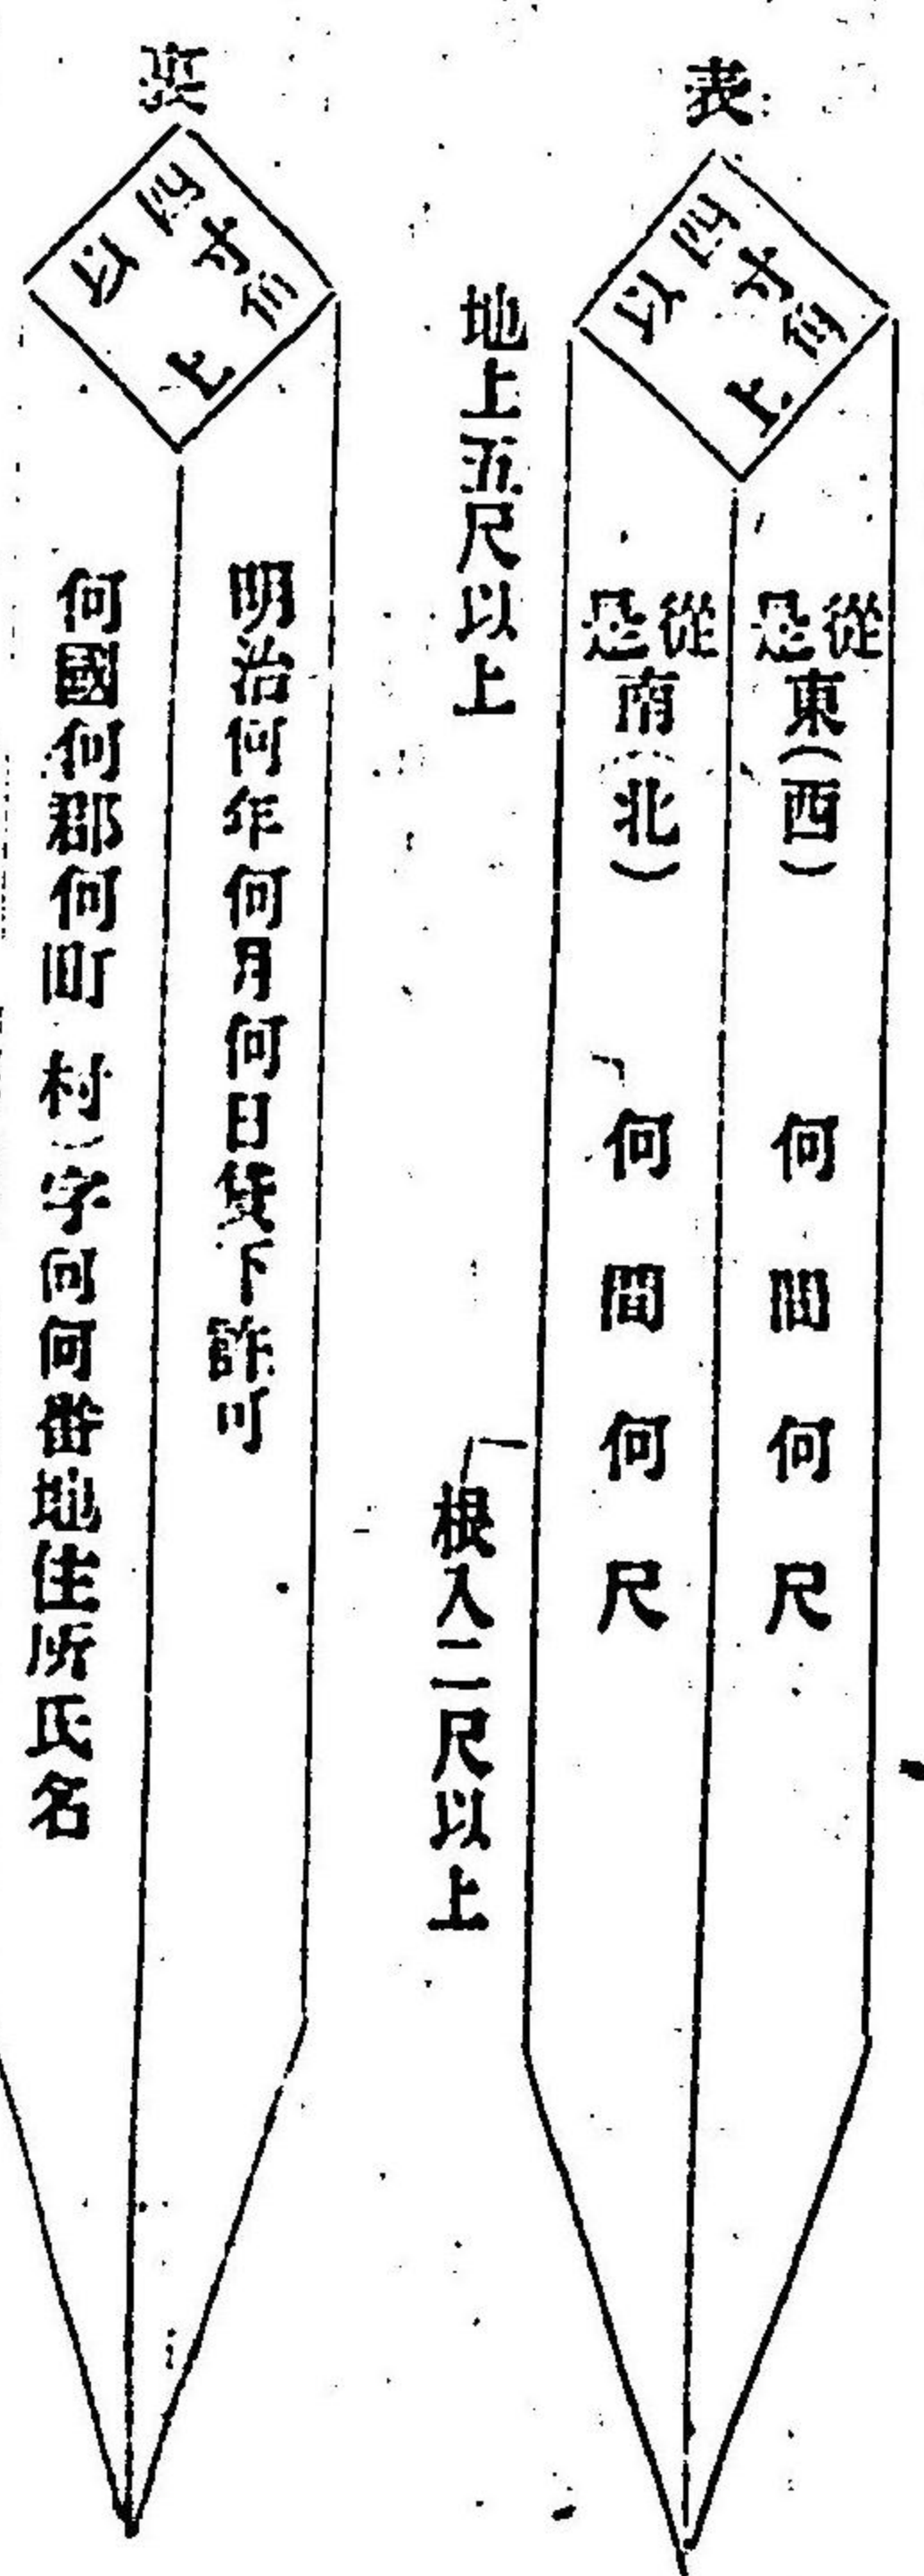 表
四寸角
以上
從是東(西) 何間何尺
從是南(北) 何間何尺
地上五尺以上
根入二尺以上
裏
四寸角
以上
明治何年何月何日貸下許可
何國何郡何町(村)字何何番地住所氏名